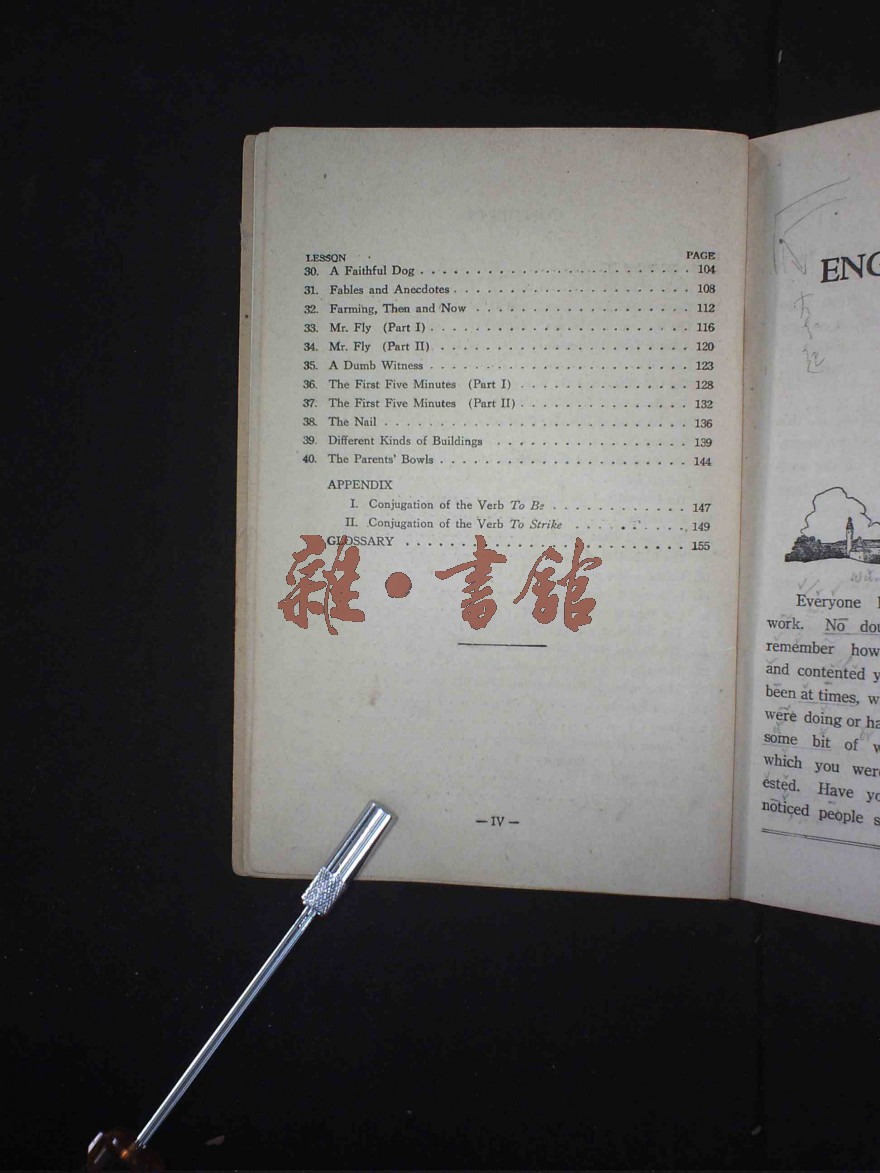 LESSON PAGE
30. A Faithful Dog 104
31. Fables and Anecdotes 108
32. Farming, Then and Now 112
33. Mr. Fly (Part I) 116
34. Mr. Fly (Part II) 120
35. A Dumb Witness 123
36. The First Five Minutes (Part I) 128
37. The First Five Minutes (Part II) 132
38. The Nail 136
39. Different Kinds of Buildings 139
40. The Parents' Bowls 144
APPENDIX
I. Conjugation of the Verb To Be 147
II. Conjugation of the Verb To Strike 149
GLOSSARY 155
雜·書館
—IV—
ENG
Everyone
work. No dou
remember how
and contented y
been at times, w
were doing or ha
some bit of w
which you were
ested. Have yo
noticed people s